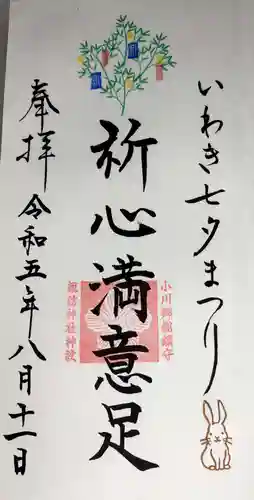 いわき七夕まつり
祈心満意足
小川郷総鎮守
奉拝 令和五年八月十一日